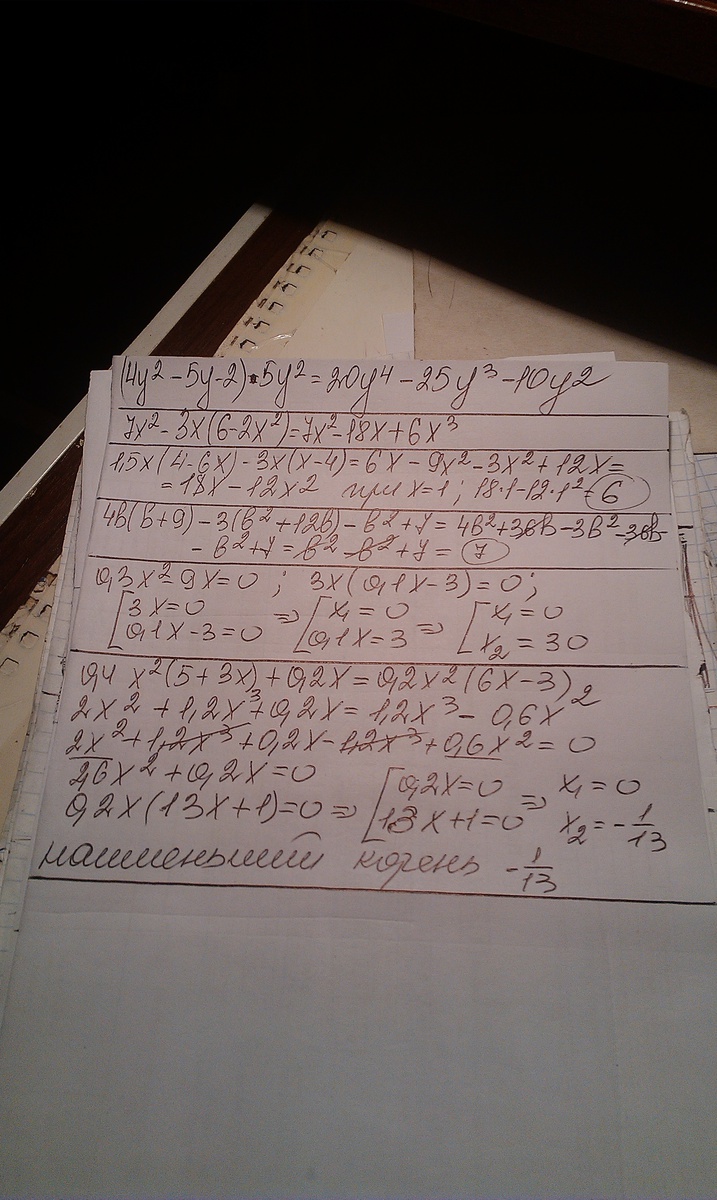 (4y² - 5y - 2) · 5y² = 20y⁴ - 25y³ - 10y2
7x² - 3x(6 - 2x²) = 7x² - 18x + 6x³
1,5x(4 - 6x) - 3x(x - 4) = 6x - 9x² - 3x² + 12x =
= 18x - 12x2 при x = 1; 18·1 - 12·1² = 6
4b(b + 9) - 3(b² + 12b) - b² + 7 = 4b² + 36b - 3b² - 36b -
- b² + 7 = b² - b² + 7 = 7
0,3x² - 9x = 0 ; 3x(0,1x - 3) = 0;
[3x = 0 ⇒ [x₁ = 0 [x₁ = 0
0,1x - 3 = 0 0,1x = 3 ⇒ x₂ = 30
0,4 x²(5 + 3x) + 0,2x = 0,2x²(6x - 3)
2x² + 1,2x³ + 0,2x = 1,2x³ - 0,6x²
2x² + 1,2x³ + 0,2x - 1,2x³ + 0,6x² = 0
2,6x² + 0,2x = 0
0,2x(13x + 1) = 0 ⇒ [0,2x = 0 ⇒ x₁ = 0
13x + 1 = 0 x₂ = -1/13
наименьший корень -1/13